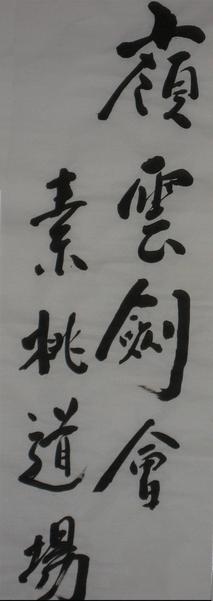 嶺雲劍會
素桃道場